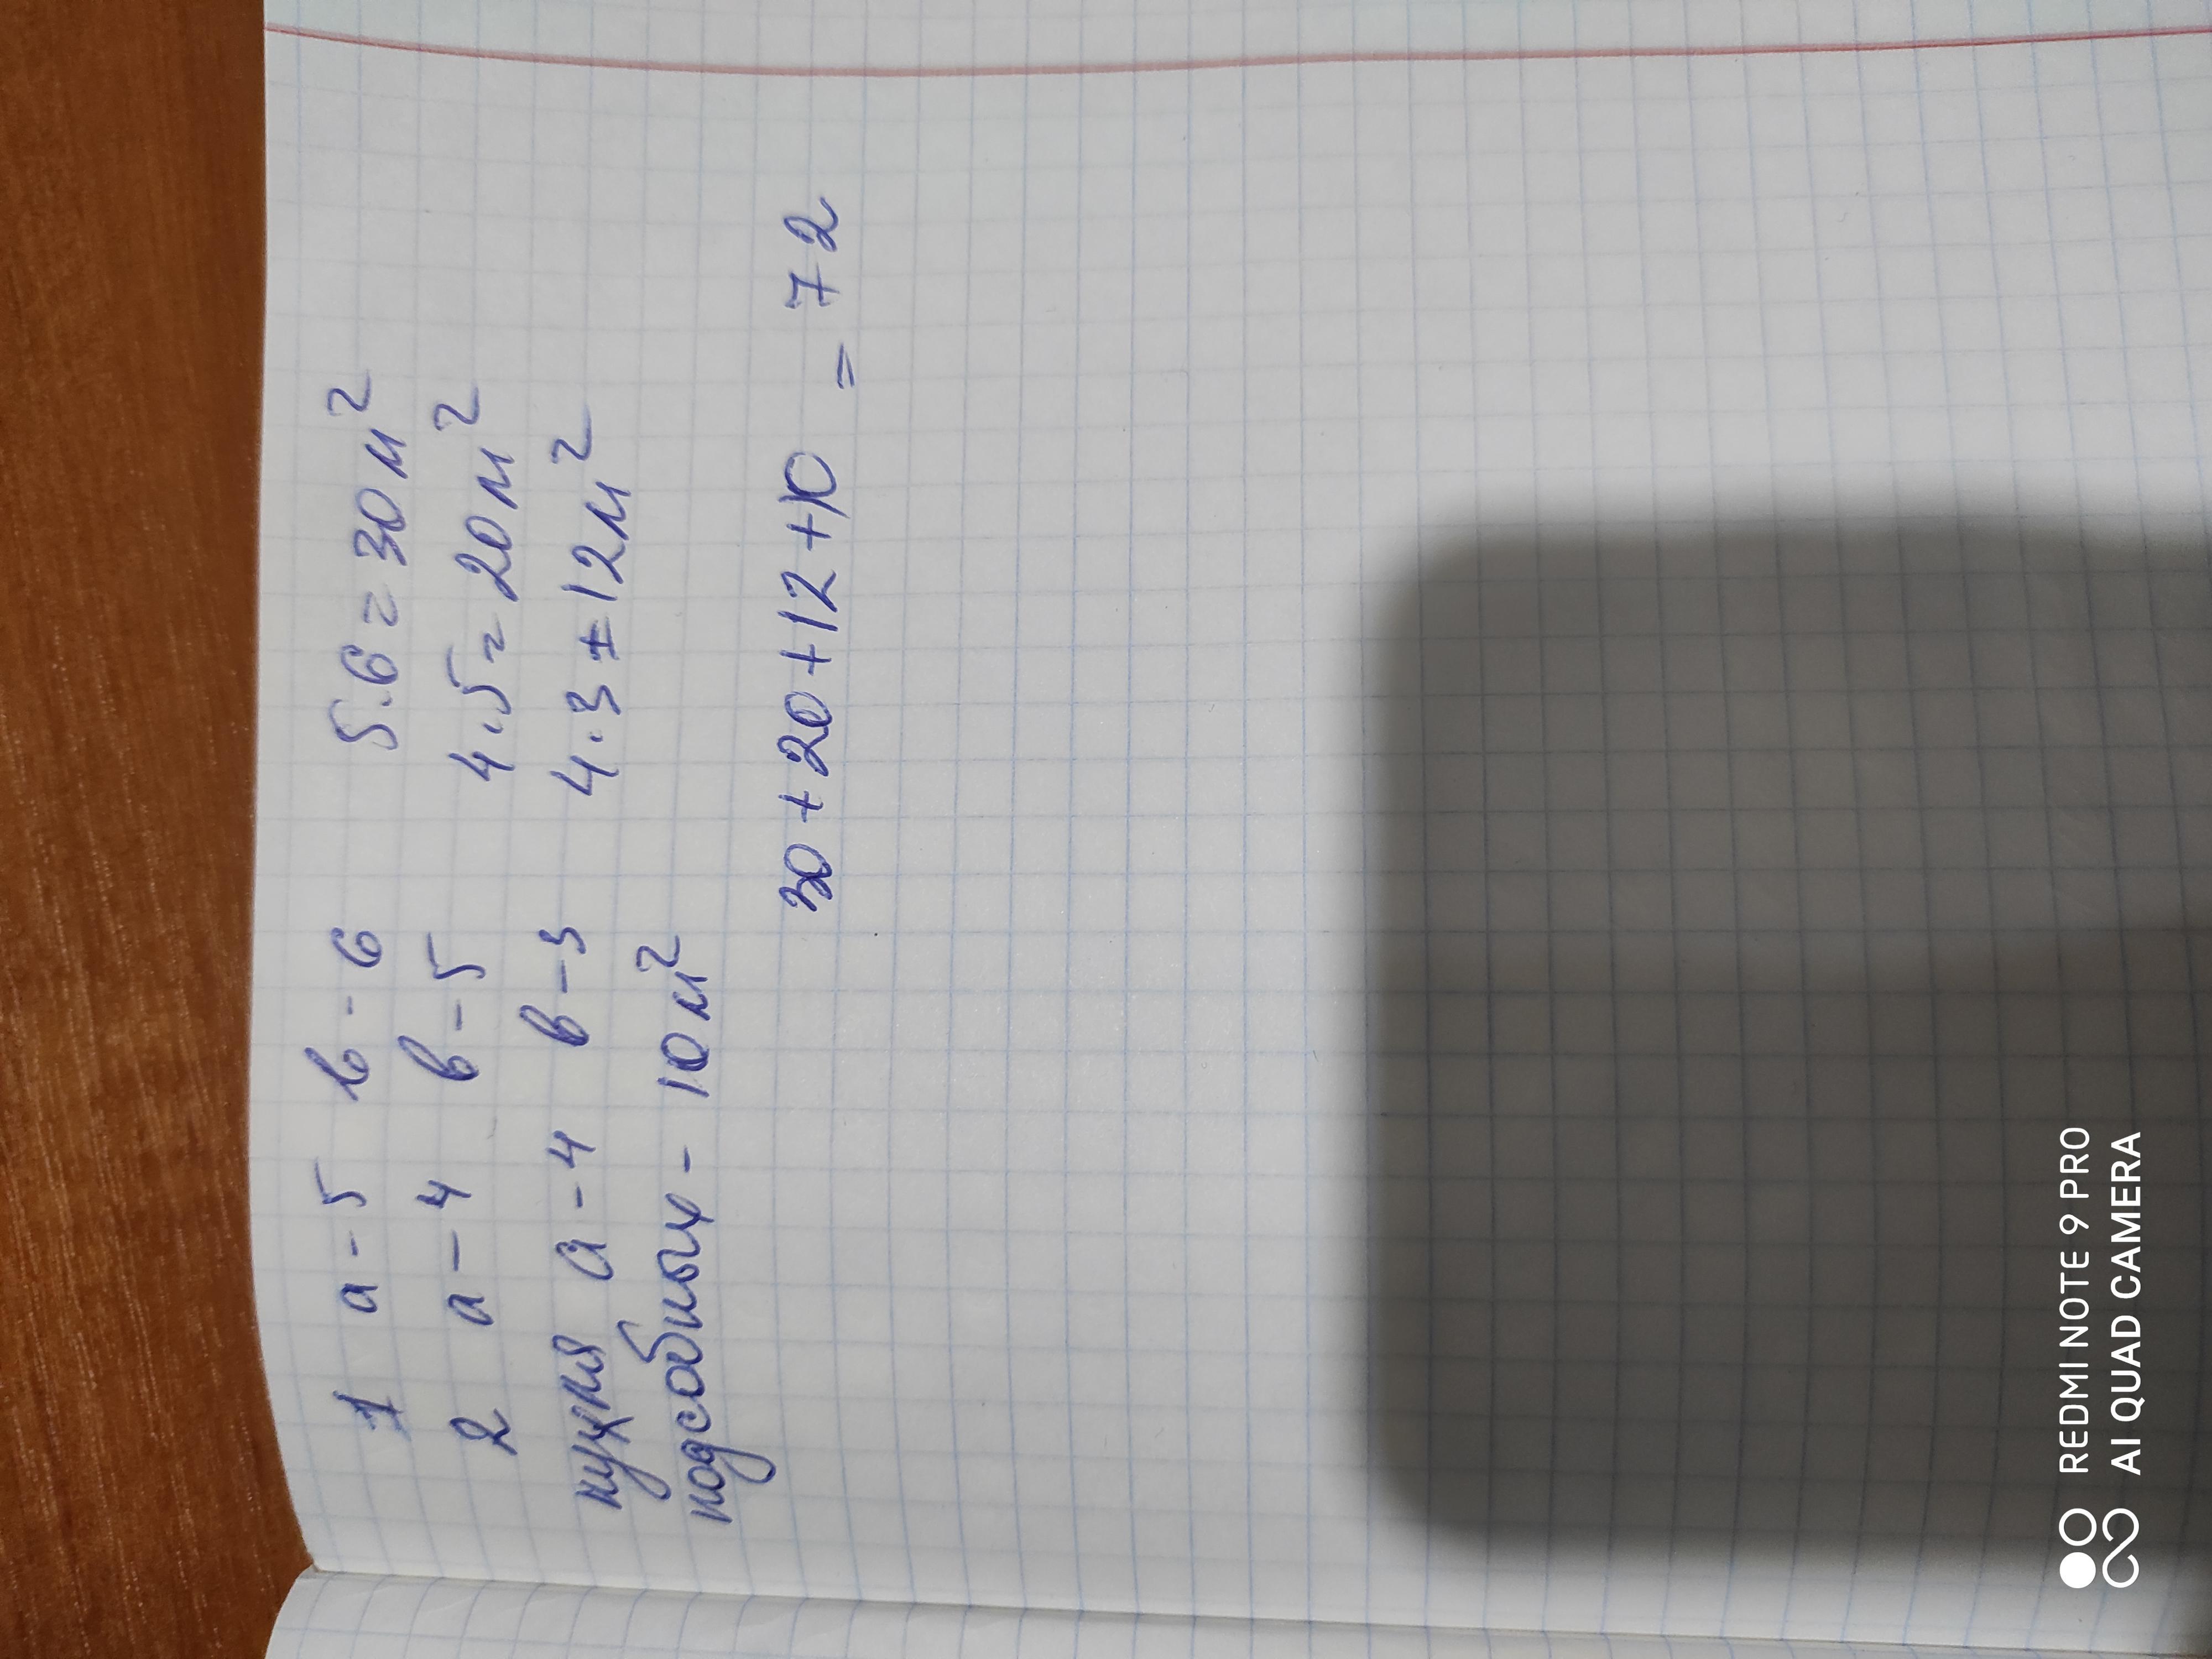 1 а - 5 в - 6 5.6 = 30 м²
2 а - 4 в - 5 4.5 = 20 м²
кухня а - 4 в - 3 4.3 = 12 м²
подсобных - 10 м²
30 + 20 + 12 + 10 = 72
REDMI NOTE 9 PRO
AI QUAD CAMERA